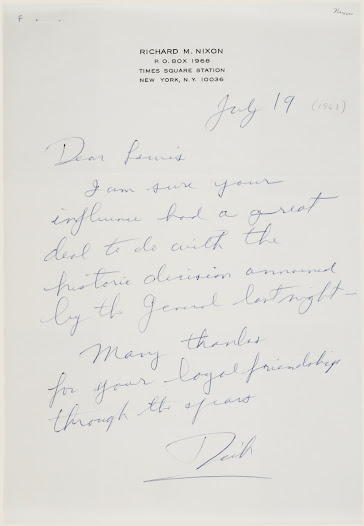 F
Nixon
RICHARD M. NIXON
P. O. BOX 1968
TIMES SQUARE STATION
NEW YORK, N. Y. 10036
July 19 (1968)
Dear Lewis
I am sure your
influence had a great
deal to do with the
historic decision announced
by the General last night—
Many thanks
for your loyal friendship
through the years
Dick